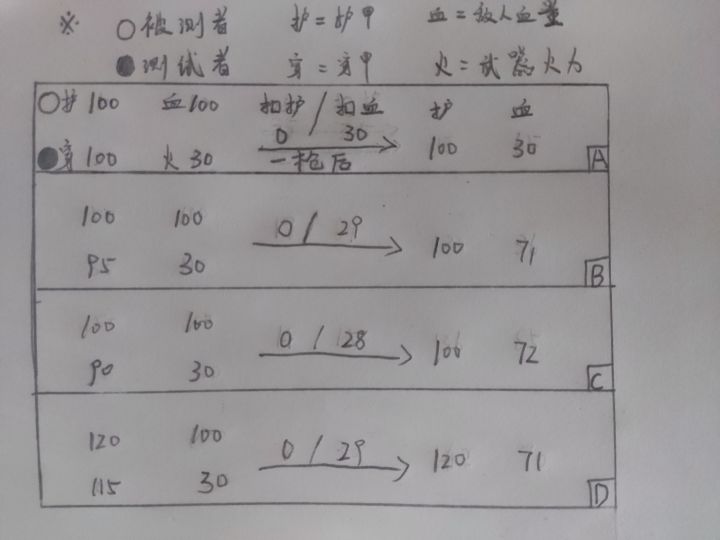 ※ ○被测者 护=护甲 血=敌人血量
●测试者 穿=穿甲 火=武器火力
○护 100 血100 扣护/扣血 护 血
0 30
●穿 100 火 30 一枪后 100 30 A
100 100 0 / 29
95 30 100 71 B
100 100 0 / 28 100 72
90 30 C
120 100 0 / 29 120 71
115 30 D